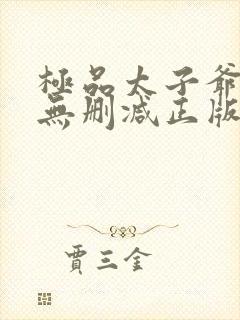 極品太子爺
無刪減正版
賈三金